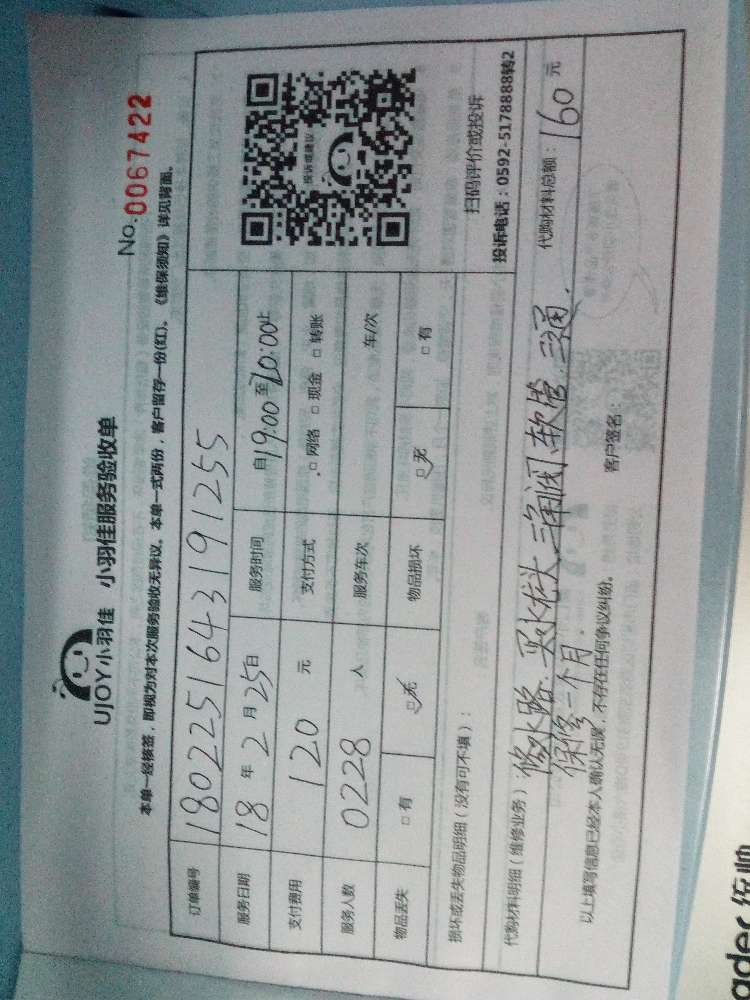 UJOY小羽佳 小羽佳服务验收单
No.0067422
本单一经核签，即视为对本次服务验收无异议。本单一式两份，客户留存一份(红)。《维保须知》详见背面。
订单编号 180225164319 1255
服务日期 18年2月25日 服务时间 自19:00至20:00止
支付费用 120元 支付方式 □网络 □现金 □转账
服务人数 0228人 服务车次 车/次
物品丢失 □有 □无 物品损坏 □无 □有
投诉或建议
扫码评价或投诉
投诉电话：0592-5178888转2
损坏或丢失物品明细（没有可不填）：
代购材料明细（维修业务）：修水路.买水龙头.三角阀.软管.三通. 代购材料总额：160元
保修一个月.
以上填写信息已经本人确认无误，不存在任何争议纠纷。 客户签名：
ader 统帅